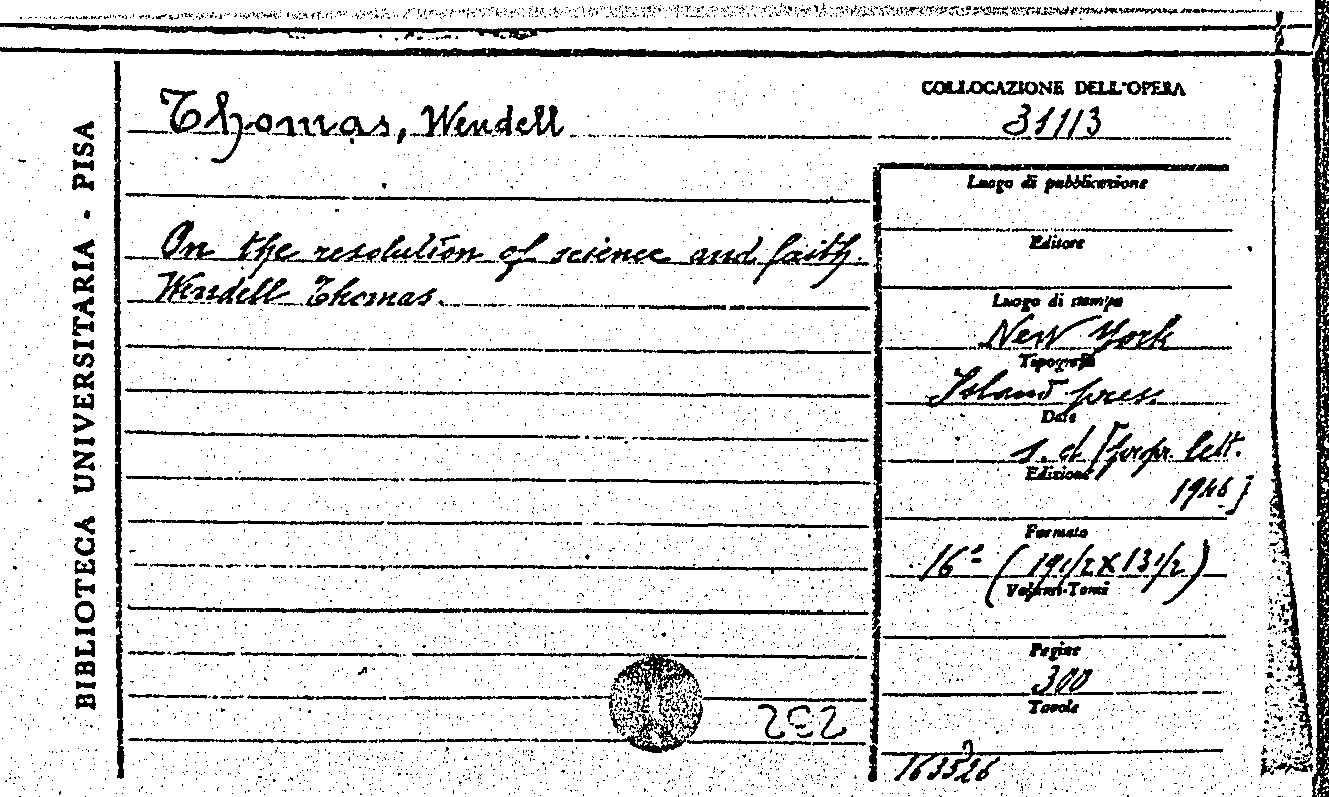 BIBLIOTECA UNIVERSITARIA - PISA
Thomas, Wendell
On the resolution of science and faith.
Wendell Thomas.
COLLOCAZIONE DELL'OPERA
31113
Luogo di pubblicazione
Editore
Luogo di stampa
New York
Tipografia
Island press
Data
s. d [propr. lett.
Edizione
1946]
Formato
16° (19 1/2 x 13 1/2)
Volumi-Tomi
Pagine
300
Tavole
252